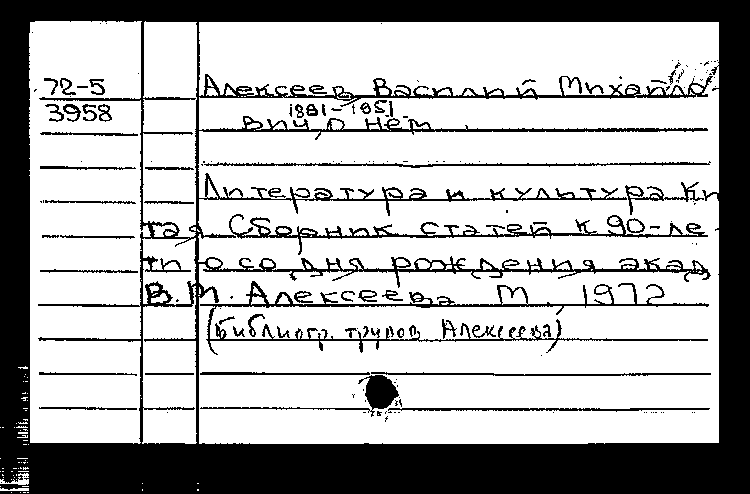 72-5 Алексеев Василий Михайло-
3958 1881-1951
вич, о нем.
Литература и культура Ки
тая Сборник статей к 90-ле-
тию со дня рождения акад
В.М. Алексеева М. 1972
(Библиогр. трудов Алексеева)